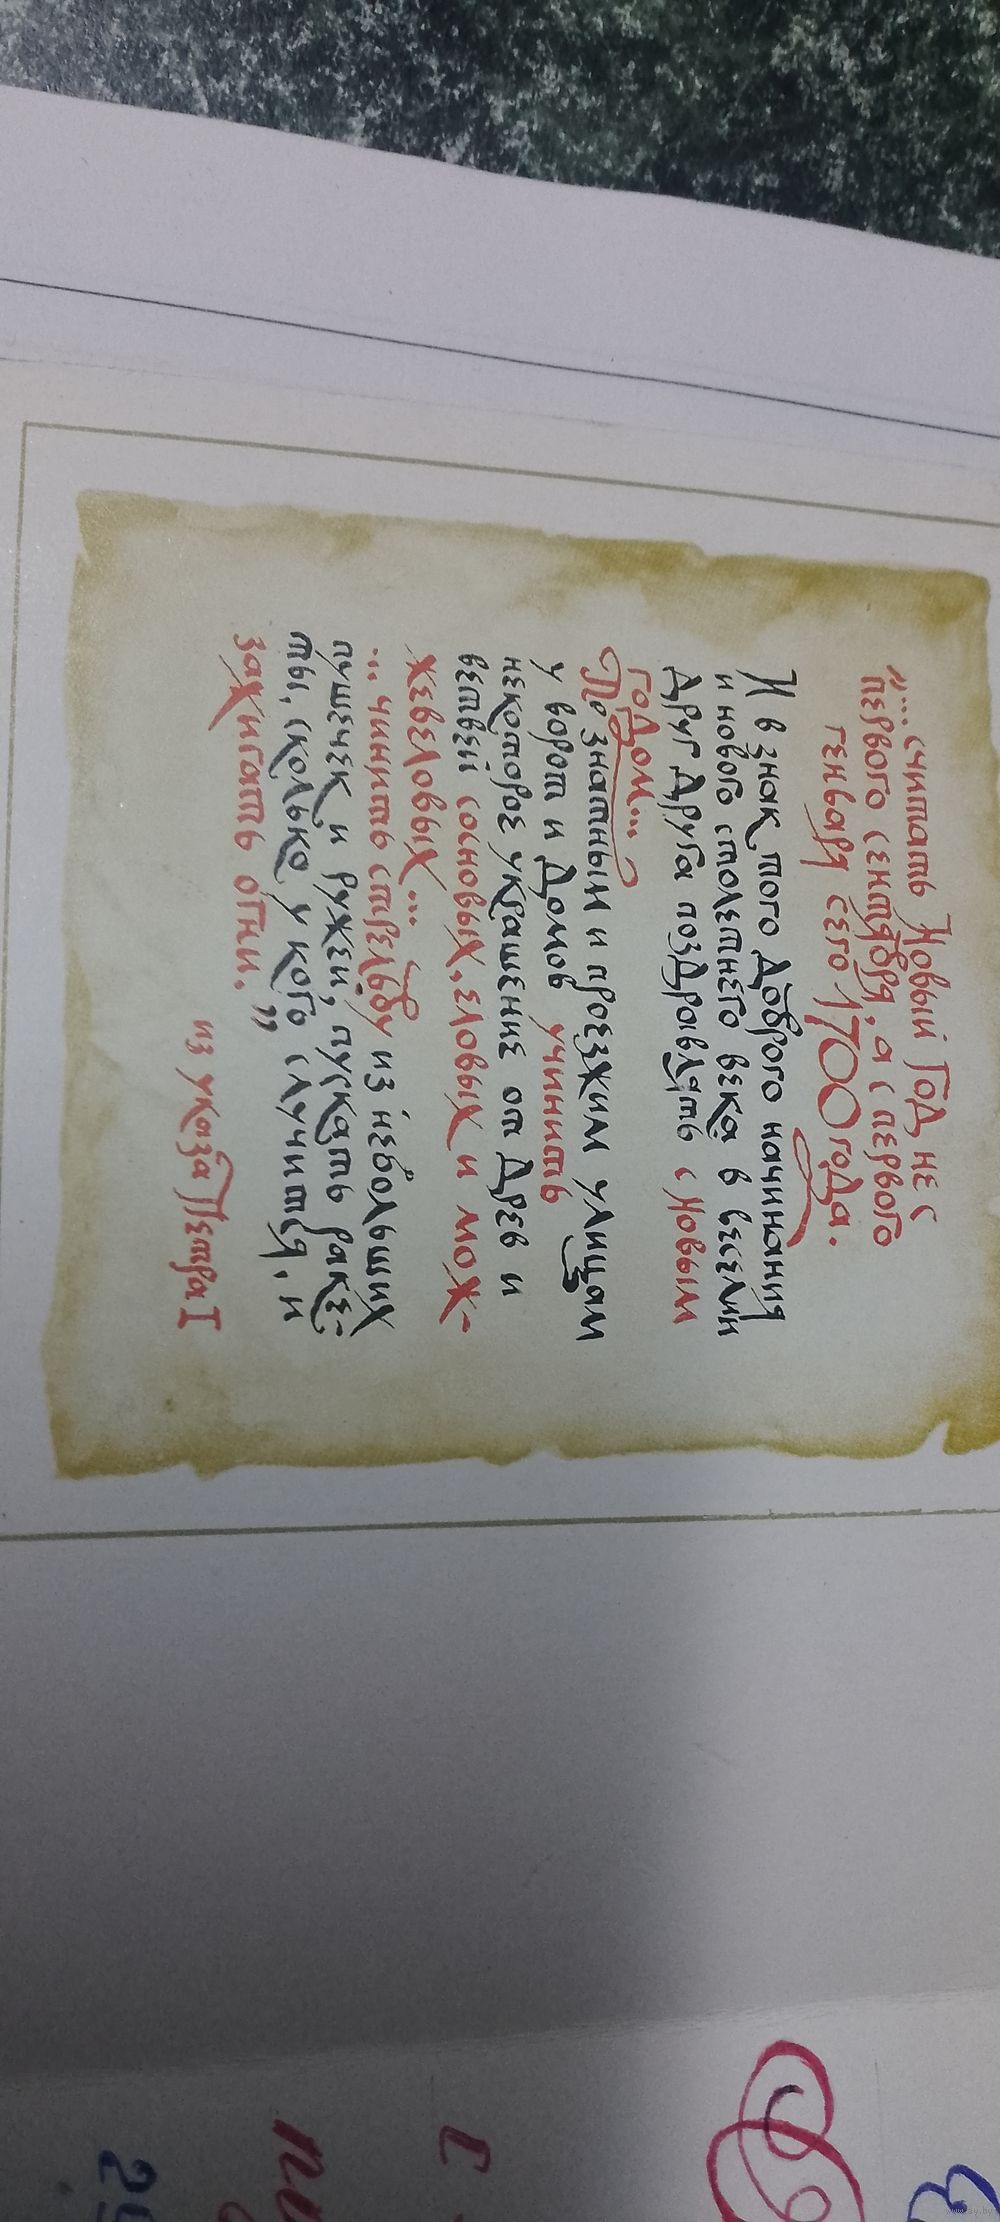 „....считать Новый Год не с
первого сентября, а с первого
генваря сего 1700 года.
И в знак того доброго начинания
и нового столетнего века в веселии
друг друга поздравлять с Новым
годом...
По знатным и проезжим улицам
у ворот и домов учинить
некоторое украшение от древ и
ветвей сосновых, еловых и мож-
жевеловых...
... чинить стрельбу из небольших
пушечек и ружей, пускать раке-
ты, сколько у кого случится, и
зажигать огни."
из указа Петра I